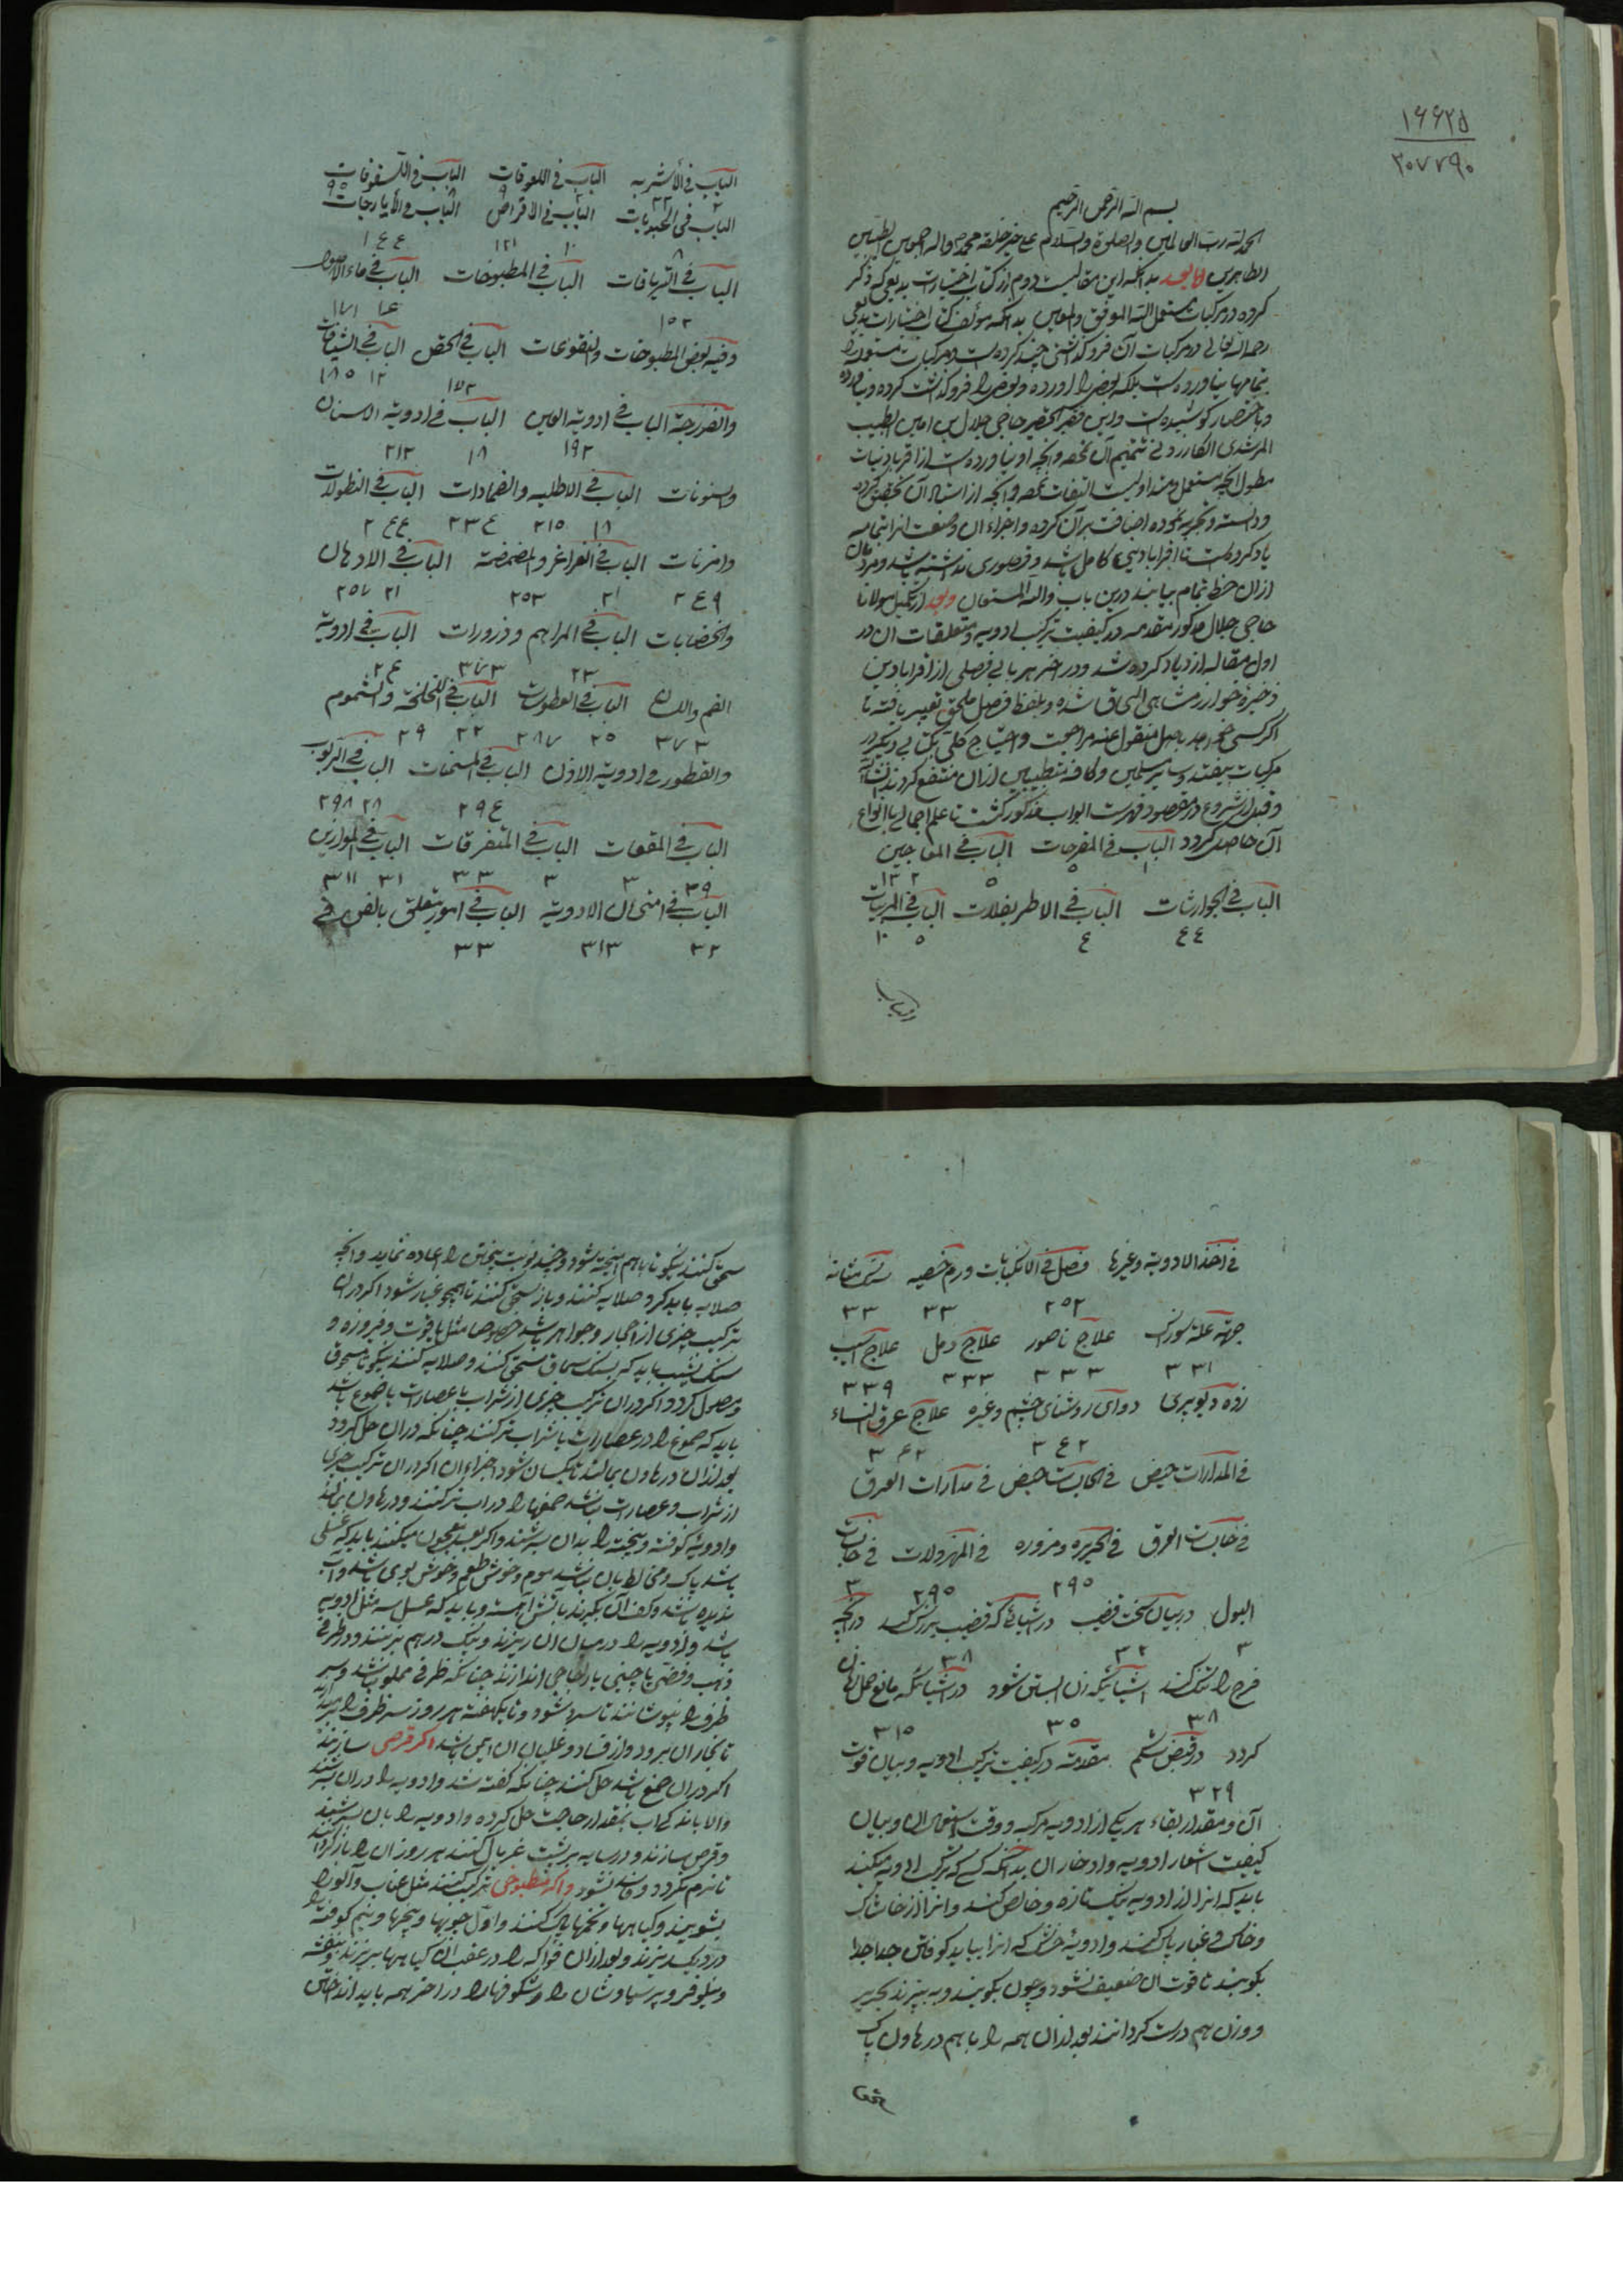 ۱۶۶۲۵
۲۰۷۷۹۰
بسم الله الرحمن الرحیم
الحمد لله رب العالمین والصلوة والسلام علی خیر خلقه محمد و اله اجمعین الطیبین
الطاهرین اما بعد بدانکه این مقالت دوم از کتاب اختیارات بدیعی که ذکر
کرده در مرکبات مستعمل الله الموفق والمعین بدانکه مؤلف کتاب اختیارات بدیعی
رحمه الله تعالی در مرکبات آن فروگذاشتی چند کرده است و مرکبات مستعمله را
بتمامها نیاورده است بلکه بعضی را اورده و بعضی را فروگذاشت کرده و نیاورده
و باختصار کوشیده است و این فقیر الحقیر حاجی جلال بن امین الطبیب
المرشدی الکازرونی تتمیم آن نموده و انچه او نیاورده است از اقرابادینات
مطول انچه مستعمل و متداولست التفات نموده و انچه از استادان تحقیق کرده
و دانسته و تجربه نموده اضافت بر آن کرده و اجزاء آن و صنعت انرا بتمامه
یاد کرده است تا اقرابادینی کامل باشد و قصوری نداشته باشد و مردمان
ازان حظ تمام بیابند درین باب والله المستعان وبعد از تکمیل مولانا
حاجی جلال مذکور مقدمه در کیفیت ترکیب ادویه و متعلقات ان در
اول مقاله ازدیاد کرده شد و در اخر هر بابی فصلی از اقرابادین
ذخیره خوارزمشاهی الحاق شده و بلفظ فصل ملحق تعبیر یافته تا
اگر کسی خواهد باصل منقول عنه مراجعت و احتیاج کلی بکتابی دیگر در
مرکبات نیفتد و سایر مسلمین و کافه متطببین ازان منتفع گردند انشاء الله
و قبل از شروع در مقصود فهرست ابواب مذکور گشت تا علم اجمالی بانواع
آن حاصل گردد الباب فی المفرحات الباب فی المعاجین
الباب فی الجوارشات الباب فی الاطریفلات الباب فی المربیات
۴۴ ۴ ۵ ۱۰
الباب فی الأشربه الباب فی اللعوقات الباب فی السفوفات
الباب فی الحبوبات الباب فی الاقراص الباب فی الأیارجات
۱۰ ۱۲۱ ۱۴۴
الباب فی التریاقات الباب فی المطبوخات الباب فی ماء الاصول
۱۵۲ ۱۴ ۱۷۱
وفیه بعض المطبوخات والنقوعات الباب فی الحقن الباب فی الشیافات
۱۷۲ ۱۲ ۱۸۵
والفرزجة الباب فی ادویة العین الباب فی ادویة الاسنان
۱۹۲ ۱۸ ۲۱۲
وسنونات الباب فی الاطلیه والضمادات الباب فی النطولات
۱۸ ۲۱۵ ۲۳۴ ۲۴۴
وابزنات الباب فی الغراغر والمضمضة الباب فی الادهان
۲۴۹ ۲۱ ۲۵۳ ۲۱ ۲۵۷
والخضابات الباب فی المراهم و ذرورات الباب فی ادویة
۲۳ ۳۷۳ ۲۴
الفم واللسان الباب فی العطوسات الباب فی اللخلخة والشموم
۳۷۳ ۲۵ ۲۸۷ ۲۲ ۲۹
والقطور و ادویة الاذن الباب فی المسمنات الباب فی الربوب
۲۹۴ ۲۸ ۲۹۸
الباب فی المقیات الباب فی المتفرقات الباب فی الموازین
۳۹ ۳ ۳ ۳۳ ۳۱ ۳۱۱
الباب فی امتحان الادویة الباب فی امور یتعلق بالفن فی
۳۲ ۳۱۳ ۳۳
فی اخذ الادویة وغیرها فصل فی الانکبابات ورم خصیه
۲۵۲ ۳۳ ۳۳
جهته علة سوزاک علاج ناصور علاج دمل علاج اسب
۳۳۱ ۳۳۳ ۳۳۳ ۳۳۹
زده دوای روشنای چشم وغیره علاج عرق النساء
۳۴۲
فی المدارات حیض فی الحابسات حیض فی مدارات العرق
فی حابسات العرق فی الحریره و مزوره فی المهزولات فی حابسات
۲۹۵ ۲۹۵ ۳
البول در بیان سخت قضیب در اشیائے که قضیب بزرگ کند در انچه
۳ ۳۲ ۳۸
فرج را تنگ کند اشیائیکه زن ابستن شود در اشیائیکه مانع حمل زنان
۳۸ ۳۵ ۳۱۵
گردد در قبض شکم مقدمه در کیفیت ترکیب ادویه و بیان قوت
۳۲۹
آن و مقدار بقاء هر یکی از ادویه مرکبه و وقت استعمال ان و بیان
کیفیت استعار ادویه و ادخار ان بدانکه کسی که ترکیب ادویه میکند
باید که انرا از ادویه نیک تازه و خالص کند و انرا از خاشاک
و خاک و غبار پاک کنند و ادویهٔ خشک که انرا بباید کوفتن جدا جدا
بکوبند تا قوت ان ضعیف نشود و چون بکوبند و به بیزند بحریر
و وزن هم درست گردانند بعد ازان همه را با هم در هاون پاک
سحق کنند نیکو تا باهم امیخته شود و چند نوبت بیختن را اعاده نماید و انچه
صلایه باید کرد صلایه کنند و باز سحق کنند تا همچو غبار شود اگر دران
ترکیب چیزی از احجار و جواهر باشد خصوصا مثل یاقوت و فیروزه و
سنگ یشب باید که بسنگ سماق سحق کنند و صلایه کنند نیکو تا مسحوق
و مصول گردد و اگر دران ترکیب چیزی از شراب یا عصارات یا صموغ باشد
باید که صموغ را در عصارات یا شراب تر کنند چنانکه دران حل گردد
بعد ازان در هاون بمالند تا یکسان شود اجزاء ان اگر دران ترکیب چیزی
از شراب و عصارت نباشد صمغها را در اب تر کنند و در هاون بمالند
و ادویهٔ کوفته و بیخته را بدان بسرشند و اگر بعسل معجون میکنند باید که عسلی
باشد پاک و مخالط بان نباشد موم و خوش طعم و خوش بوی باشد و اب
ندیده باشد و کف آن بگیرند باتش آهسته و باید که عسل سه مثل ادویه
باشد و ادویه را در میان ان ریزند و نیک درهم بزنند و در ظرفی
ذهب و فضه یا چینی یا زجاجی اندازند چنانکه ظرف مملو نباشد و سر
ظرف را بپوشانند تا سرد شود و تا یکهفته هر روز سر ظرف را بردارند
تا بخار ان برود و از فساد و غلیان ان ایمن باشد و اگر قرصی سازند
اگر دران صمغ باشد حل کنند چنانکه گفته شد و ادویه را دران بسرشند
والا باندک اب بمقدار حاجت حل کرده و ادویه را بان بسرشند
و قرص سازند و در سایه بر پشت غربال کنند هر روز ان را بازگردانند
تا نرم نگردد و فاسد نشود و اگر مطبوخی ترکیب کنند مثل عناب و آلو را
بشویند و گیاهها و تخمها پاک کنند و اول چوبها و بیخها و نیم کوفته را
در دیگ بریزند و بعد ازان فواکه را در عقب ان گیاهها بریزند و بنفشه
و نیلوفر و پرسیاوشان را و شگوفها را در اخر همه باید انداختن